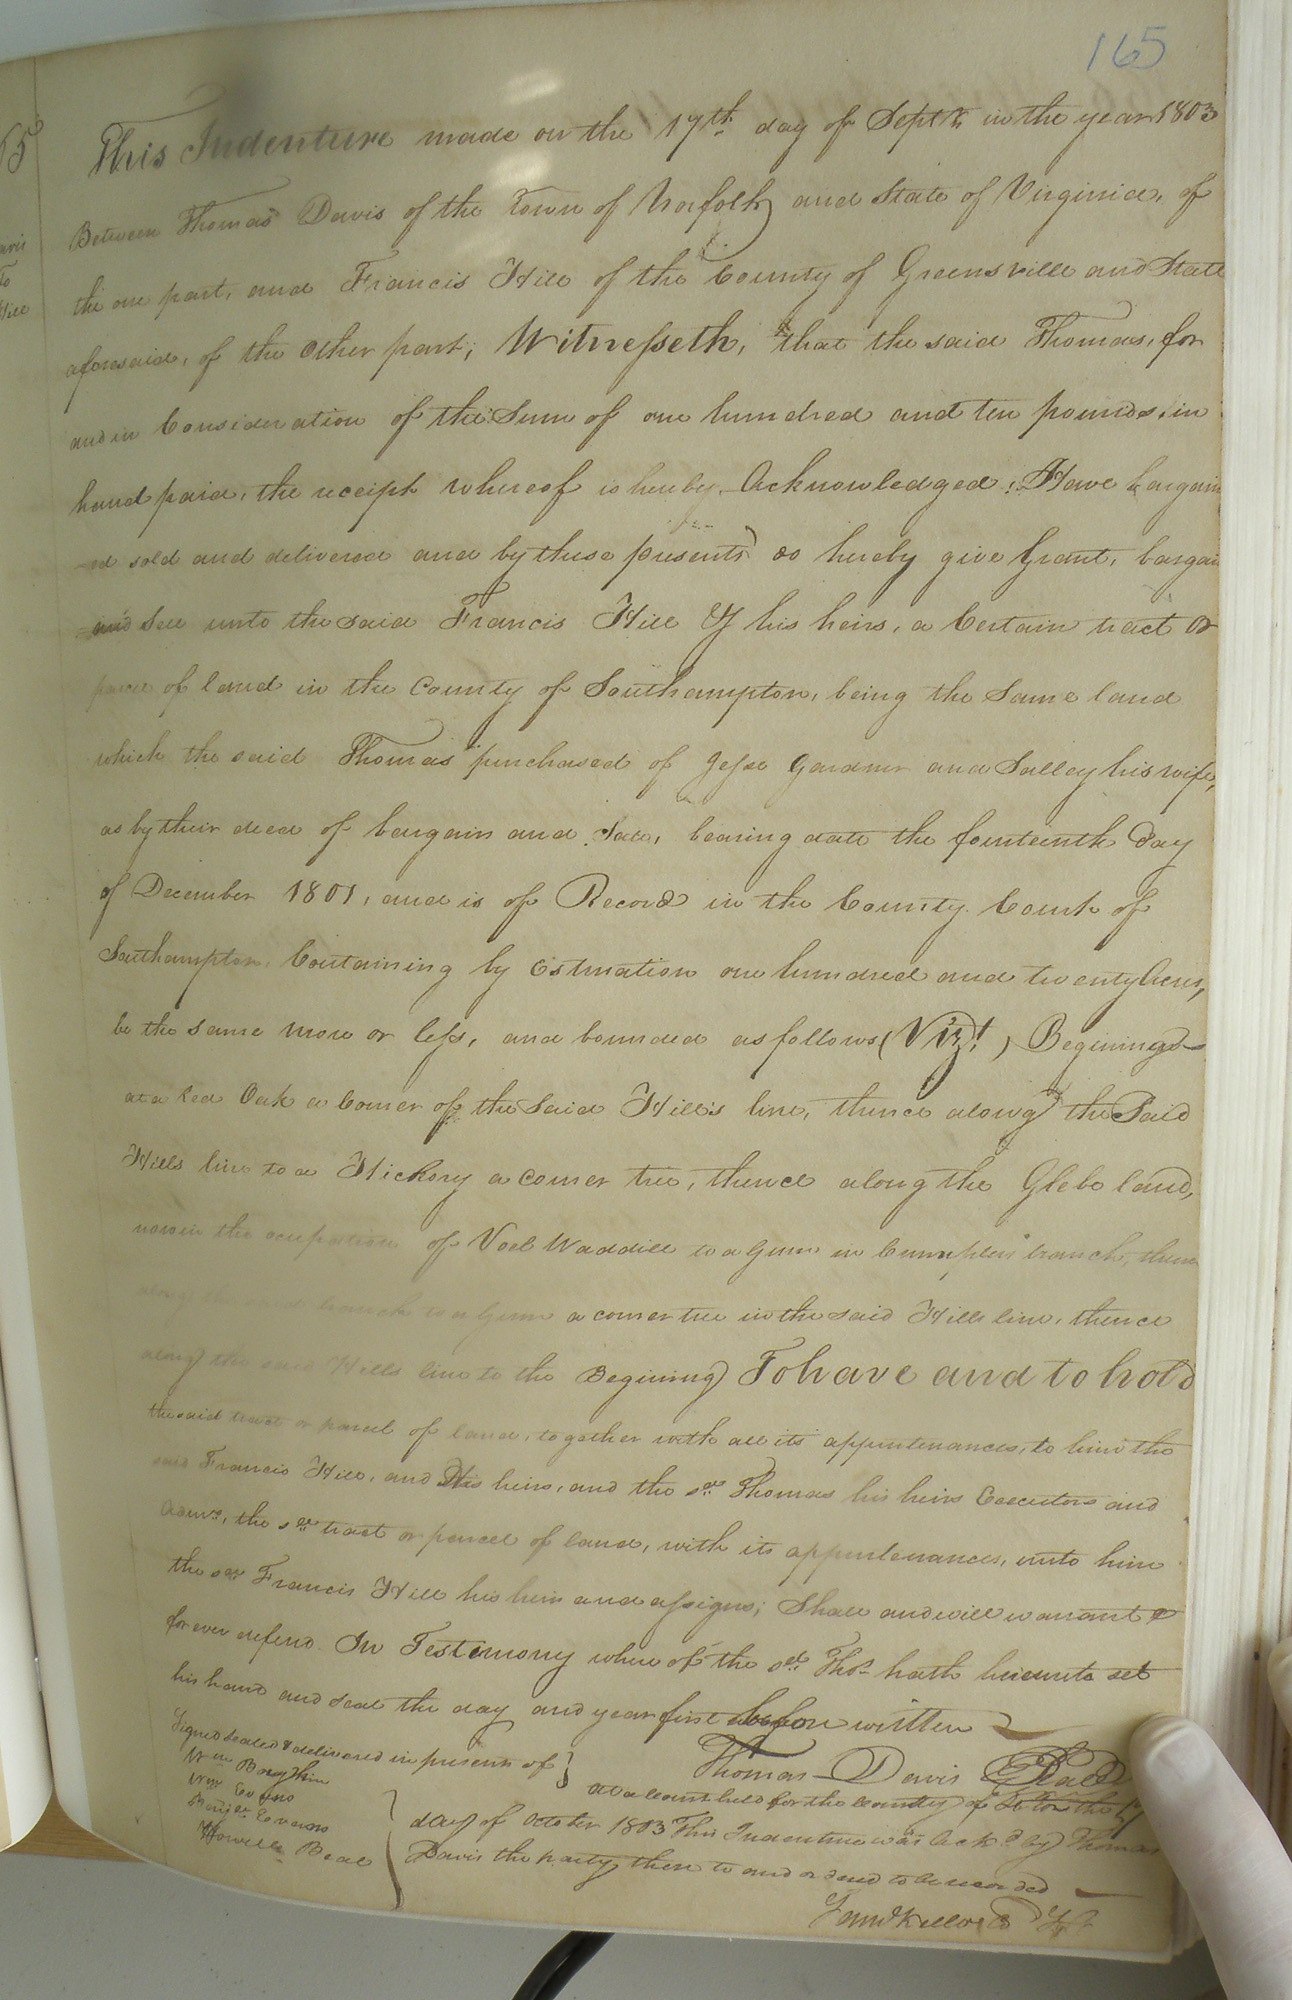 165
This Indenture made on the 17th day of Septr. in the year 1803
Between Thomas Davis of the Town of Norfolk and State of Virginia, of
the one part, and Francis Hill of the County of Greensville and State
aforesaid, of the other part, Witnesseth, that the said Thomas, for
and in Consideration of the Sum of one hundred and ten pounds, in
hand paid, the receipt whereof is hereby Acknowledged; Have bargain
ed sold and delivered and by these presents do hereby give Grant, bargain
and Sell unto the said Francis Hill & his heirs, a Certain tract or
parcel of land in the County of Southampton, being the Same land
which the said Thomas purchased of Jesse Gardner and Salley his wife,
as by their deed of bargain and Sale, bearing date the fourteenth Day
of December 1801, and is of Record in the County Court of
Southampton, Containing by Estmation one hundred and twenty Acres,
be the same more or less, and bounded as follows (Vizt.) Begining
at a Red Oak a Corner of the Said Hill's line, thence along the Said
Hills line to a Hickory a corner tree, thence along the Glebe land,
now in the ocupation of Noel Waddill to a Gum in branch, thence
along the said branch to a Gum a corner tree in the said Hills line, thence
along the said Hills line to the Begining To have and to hold
the said tract or parcel of land, together with all its appurtenances, to him the
said Francis Hill, and His heirs, and the sd. Thomas his heirs Executors and
Admrs, the sd. tract or parcel of land, with its appurtenances, unto him
the sd. Francis Hill his heirs and assigns; Shall and will warrant &
for ever defend. In Testimony where of the sd. Thos. hath hereunto set
his hand and seal the day and year first before written
Signed sealed & delivered in presents of
Thomas Davis Seal
Wm
Wm Evans
Benja. Evans
Howell Beal
At a Court held for the County of the 17
day of October 1803 This Indenture was Ack.d by Thomas
Davis the party there to and ordered to be recorded